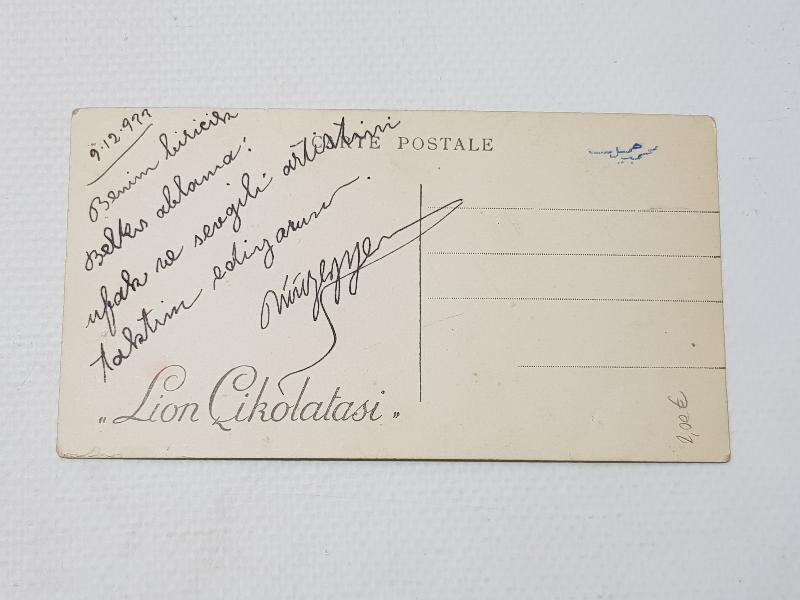 9.12.933
Benim biricik
Belkıs ablama:
ufak ve sevgili artistimi
taktim ediyorum.
CARTE POSTALE
„Lion Çikolatasi„
2,00 €